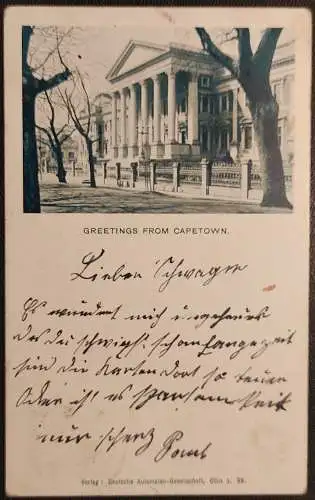 GREETINGS FROM CAPETOWN.
Lieber Schwager
Es wundert mich ungeheuer
das du schweigst schon lange Zeit
sind die Karten dort so teuer
Oder ist es Sparsamkeit
nur
Verlag: Deutsche Automaten-Gesellschaft, Cöln a. Rh.